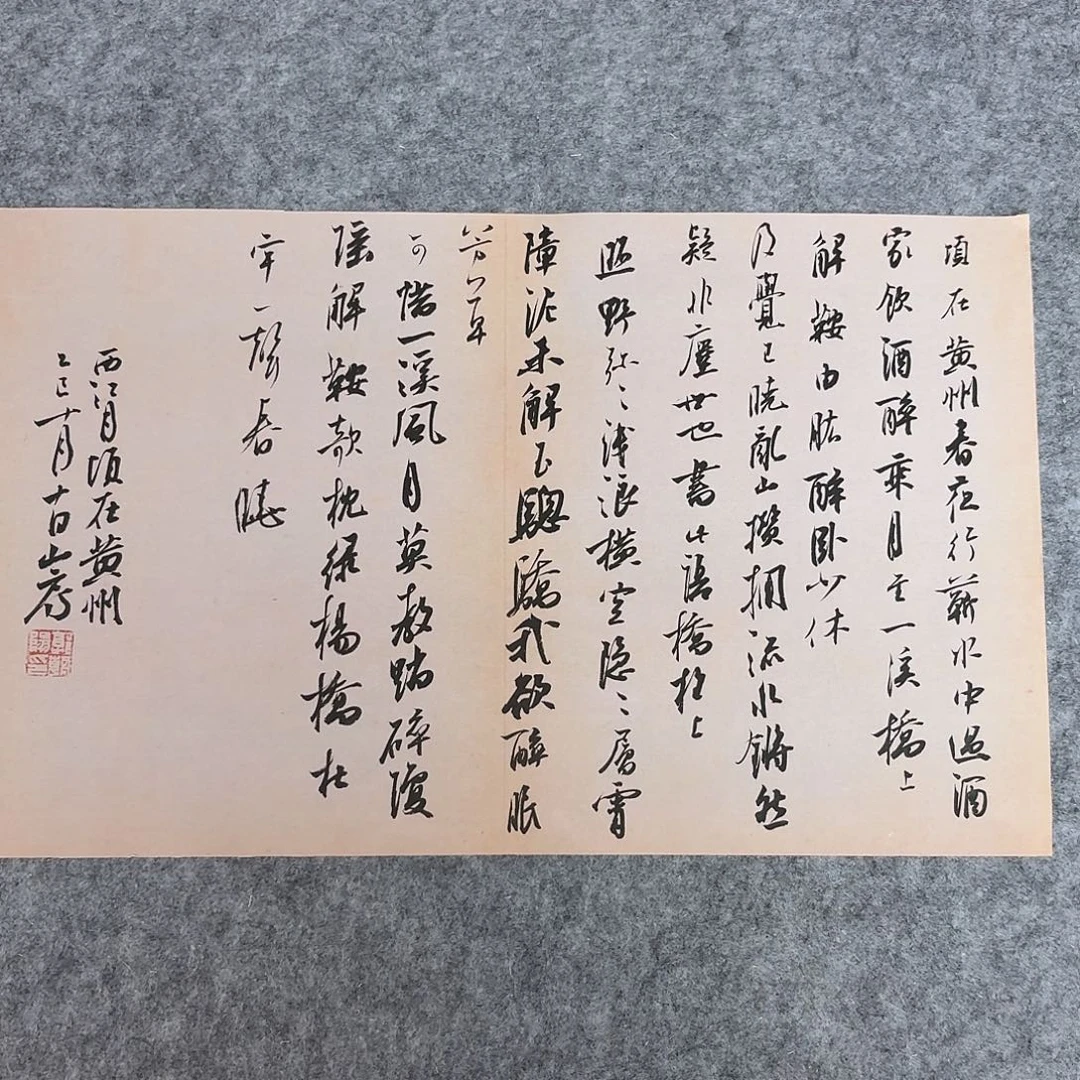 頃在黄州春夜行蘄水中過酒
家飲酒醉乘月至一溪橋上
解鞍曲肱醉卧少休
及覺已曉亂山攢擁流水鏘然
疑非塵世也書此語橋柱上
照野弥〻淺浪橫空隱〻層霄
障泥未解玉驄驕我欲醉眠
芳草
可惜一溪風月莫教踏碎瓊
瑶解鞍欹枕綠楊橋杜
宇一聲春曉
西江月頃在黄州
乙巳十月十日山